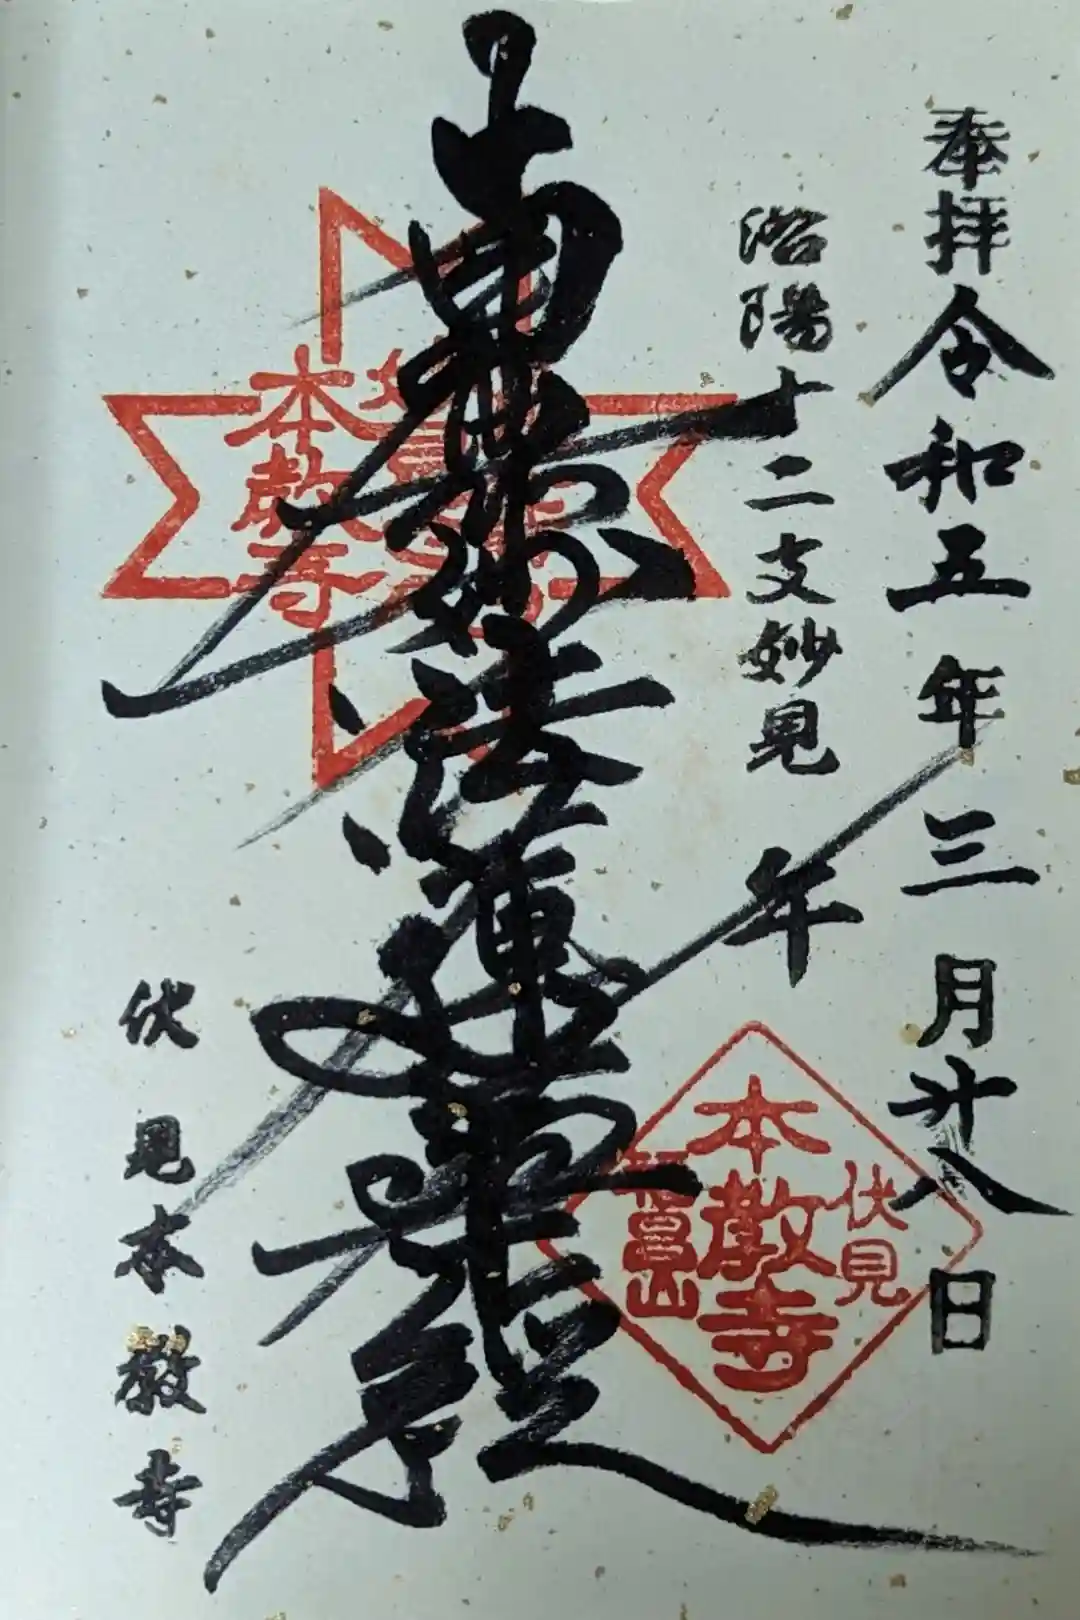 奉拝 令和五年三月廿八日
洛陽十二支妙見 年
南無妙法蓮華経
本教寺
伏見
本教寺
伏見本教寺